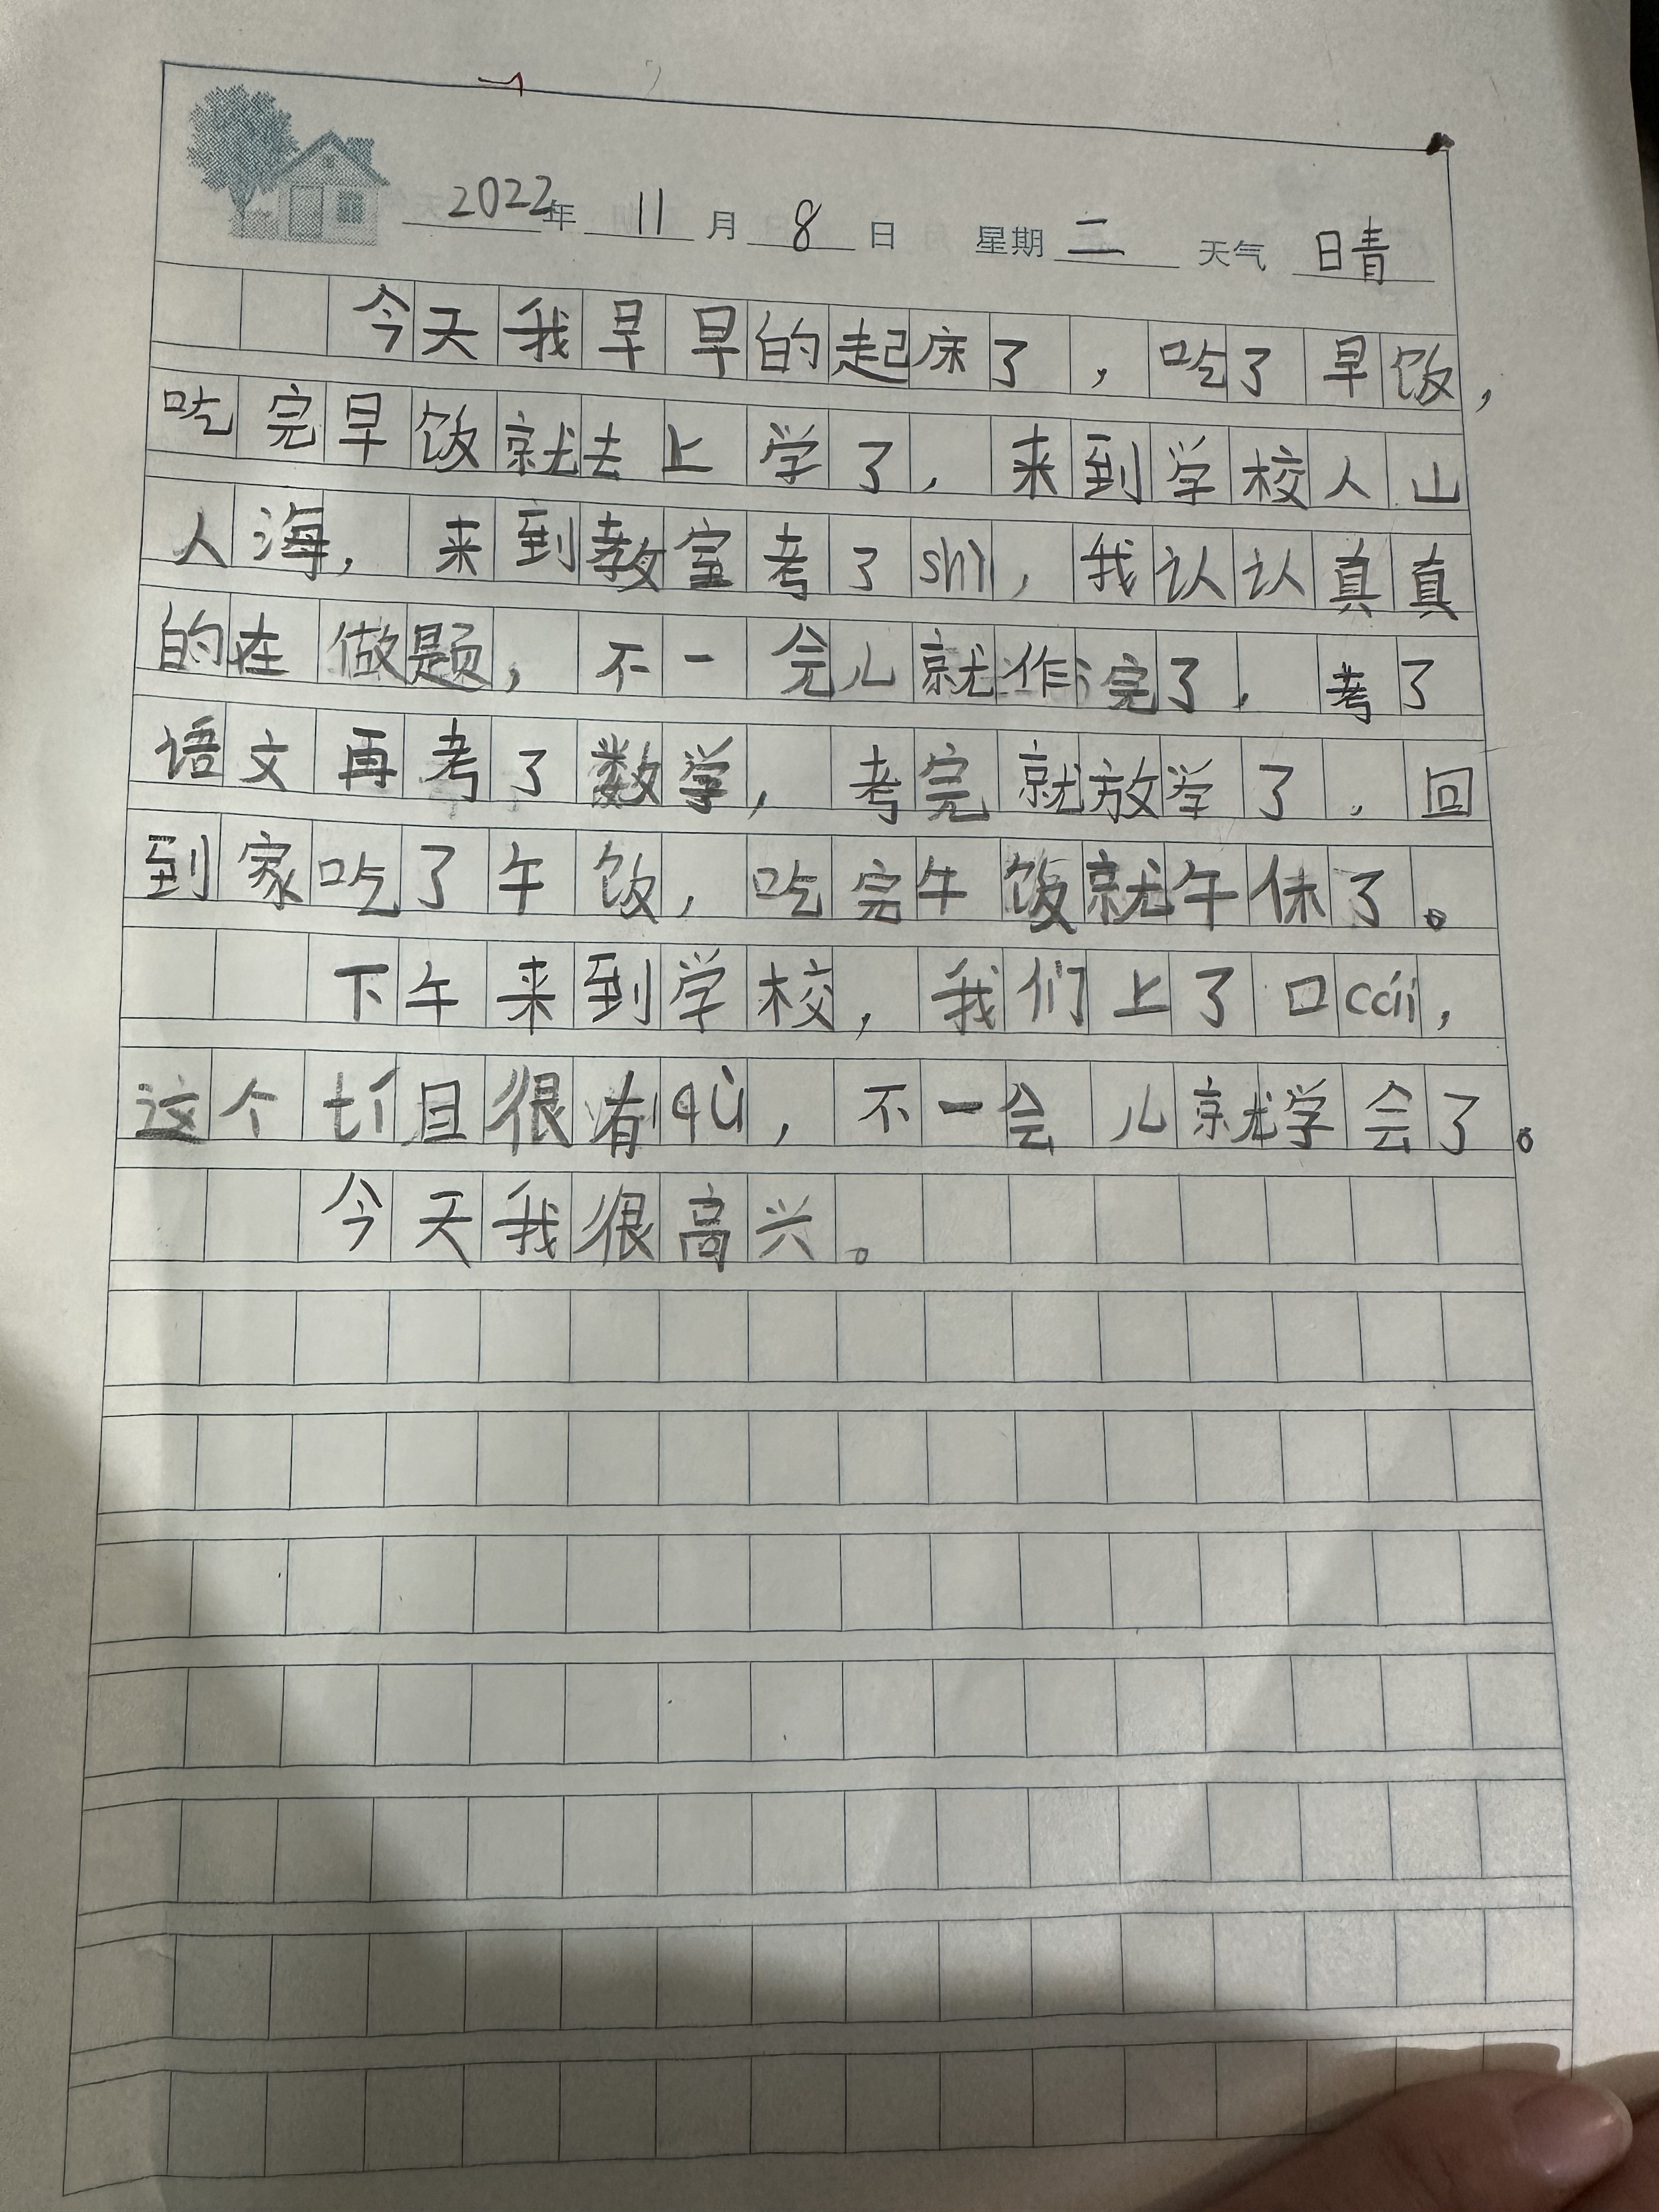 2022年 11 月 8 日 星期 二 天气 晴
今天我早早的起床了，吃了早饭，
吃完早饭就去上学了，来到学校人山
人海，来到教室考了shì，我认认真真
的在做题，不一会儿就作完了，考了
语文再考了数学，考完就放学了，回
到家吃了午饭，吃完午饭就午休了。
下午来到学校，我们上了口cái，
这个tí且很有qù，不一会儿就学会了。
今天我很高兴。